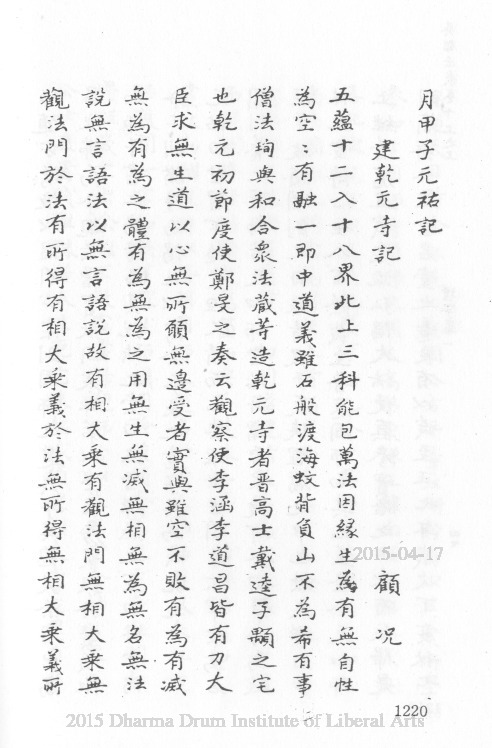 月甲子元祐記
建乾元寺記 顧況
五蘊十二入十八界此上三科能包萬法因緣生為有無自性
為空:有融一即中道義雖石般渡海蚊背負山不為希有事
僧法珣與和合眾法蔵等造乾元寺者晋高士戴逵子顒之宅
也乾元初節度使鄭旻之奏云觀察使李涵李道昌皆有力大
臣求無生道以心無所願無邊受者實與雖空不敗有為有滅
無為有為之體有為無為之用無生無滅無相無為無名無法
說無言語法以無言語說故有相大乘有觀法門無相大乘無
觀法門於法有所得有相大乘義於法無所得無相大乘義所
2015-04-17
1220
2015 Dharma Drum Institute of Liberal Arts